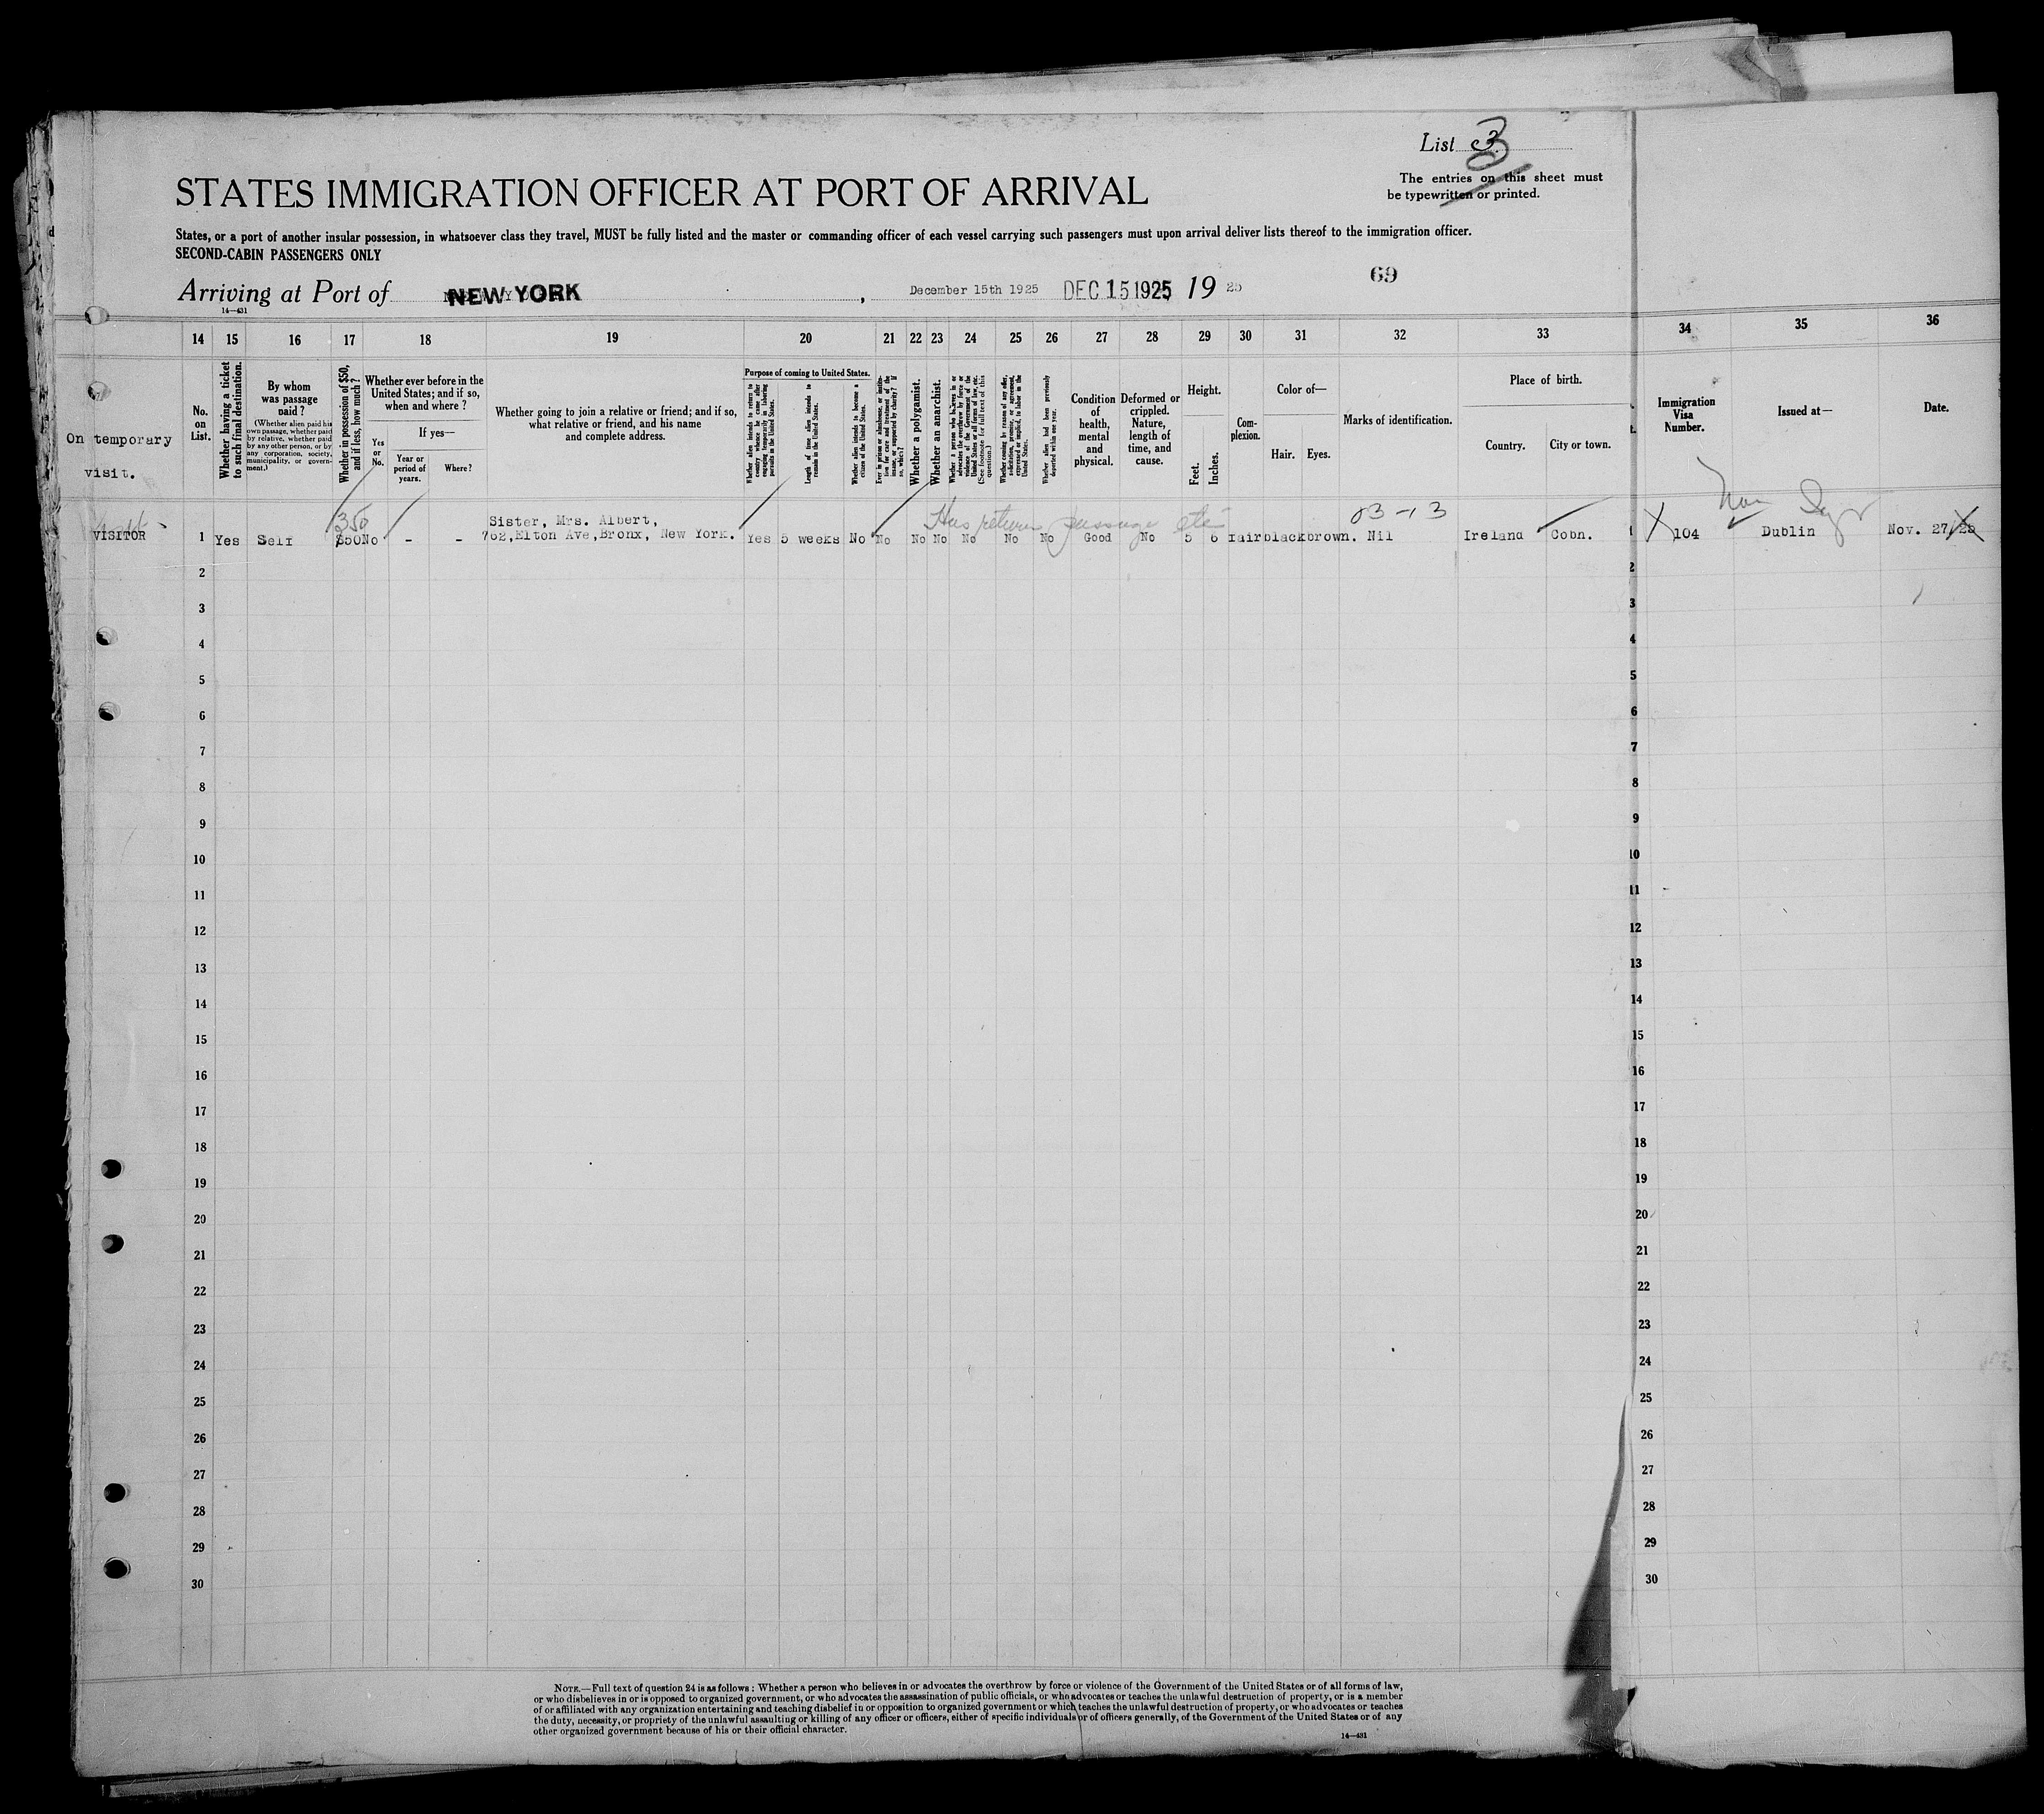 List 3
The entries on this sheet must
be typewritten or printed.
STATES IMMIGRATION OFFICER AT PORT OF ARRIVAL
States, or a port of another insular possession, in whatsoever class they travel, MUST be fully listed and the master or commanding officer of each vessel carrying such passengers must upon arrival deliver lists thereof to the immigration officer.
SECOND-CABIN PASSENGERS ONLY
69
Arriving at Port of NEW YORK, December 15th 1925 DEC 15 1925 19 25
14—431
14 15 16 17 18 19 20 21 22 23 24 25 26 27 28 29 30 31 32 33 34 35 36
On temporary
visit.
No.
on
List.
Whether having a ticket
to such final destination.
By whom
was passage
paid?
(Whether alien paid his
own passage, whether paid
by relative, whether paid
by any other person, or by
any corporation, society,
municipality, or govern-
ment.)
Whether in possession of $50,
and if less, how much?
Whether ever before in the
United States; and if so,
when and where?
Yes
or
No.
If yes—
Year or
period of
years.
Where?
Whether going to join a relative or friend; and if so,
what relative or friend, and his name
and complete address.
Purpose of coming to United States.
Whether alien intends to return to
country whence he came after
engaging temporarily in laboring
pursuits in the United States.
Length of time alien intends to
remain in the United States.
Whether alien intends to become a
citizen of the United States.
Ever in prison or almshouse, or institu-
tion for care and treatment of the
insane, or supported by charity? If
so, which?
Whether a polygamist.
Whether an anarchist.
Whether a person who believes in or
advocates the overthrow by force or
violence of the Government of the
United States or all forms of law, etc.
(See footnote for full text of this
question.)
Whether coming by reason of any offer,
solicitation, promise, or agreement,
expressed or implied, to labor in the
United States.
Whether alien had been previously
deported within one year.
Condition
of
health,
mental
and
physical.
Deformed or
crippled.
Nature,
length of
time, and
cause.
Height.
Feet.
Inches.
Com-
plexion.
Color of—
Hair. Eyes.
Marks of identification.
Place of birth.
Country.
City or town.
Immigration
Visa
Number.
Issued at—
Date.
350
Has return passage etc
03-13
Non
VISITOR
1 Yes Self $50 No - -
Sister, Mrs. Albert,
762, Elton Ave, Bronx, New York.
Yes 5 weeks No No No No No No No Good No 5 6 fair black brown. Nil Ireland Cobn. 1 104 Dublin Nov. 27/25
2 2
3 3
4 4
5 5
6 6
7 7
8 8
9 9
10 10
11 11
12 12
13 13
14 14
15 15
16 16
17 17
18 18
19 19
20 20
21 21
22 22
23 23
24 24
25 25
26 26
27 27
28 28
29 29
30 30
NOTE.—Full text of question 24 is as follows: Whether a person who believes in or advocates the overthrow by force or violence of the Government of the United States or of all forms of law,
or who disbelieves in or is opposed to organized government, or who advocates the assassination of public officials, or who advocates or teaches the unlawful destruction of property, or is a member
of or affiliated with any organization entertaining and teaching disbelief in or opposition to organized government or which teaches the unlawful destruction of property, or who advocates or teaches
the duty, necessity, or propriety of the unlawful assaulting or killing of any officer or officers, either of specific individuals or of officers generally, of the Government of the United States or of any
other organized government because of his or their official character.
14—431